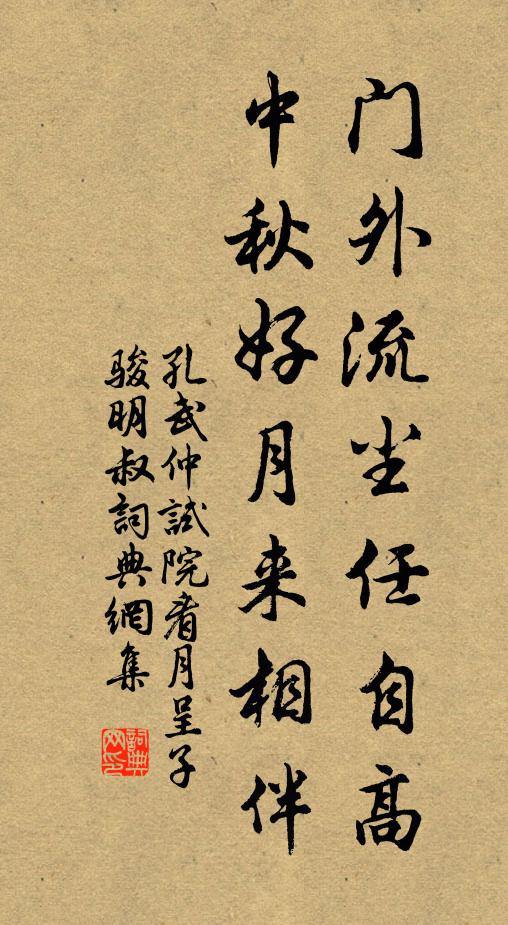 门外流尘任自高
中秋好月来相伴
孔武仲試院看月呈子
駿明叔詞典網集
詞典网印